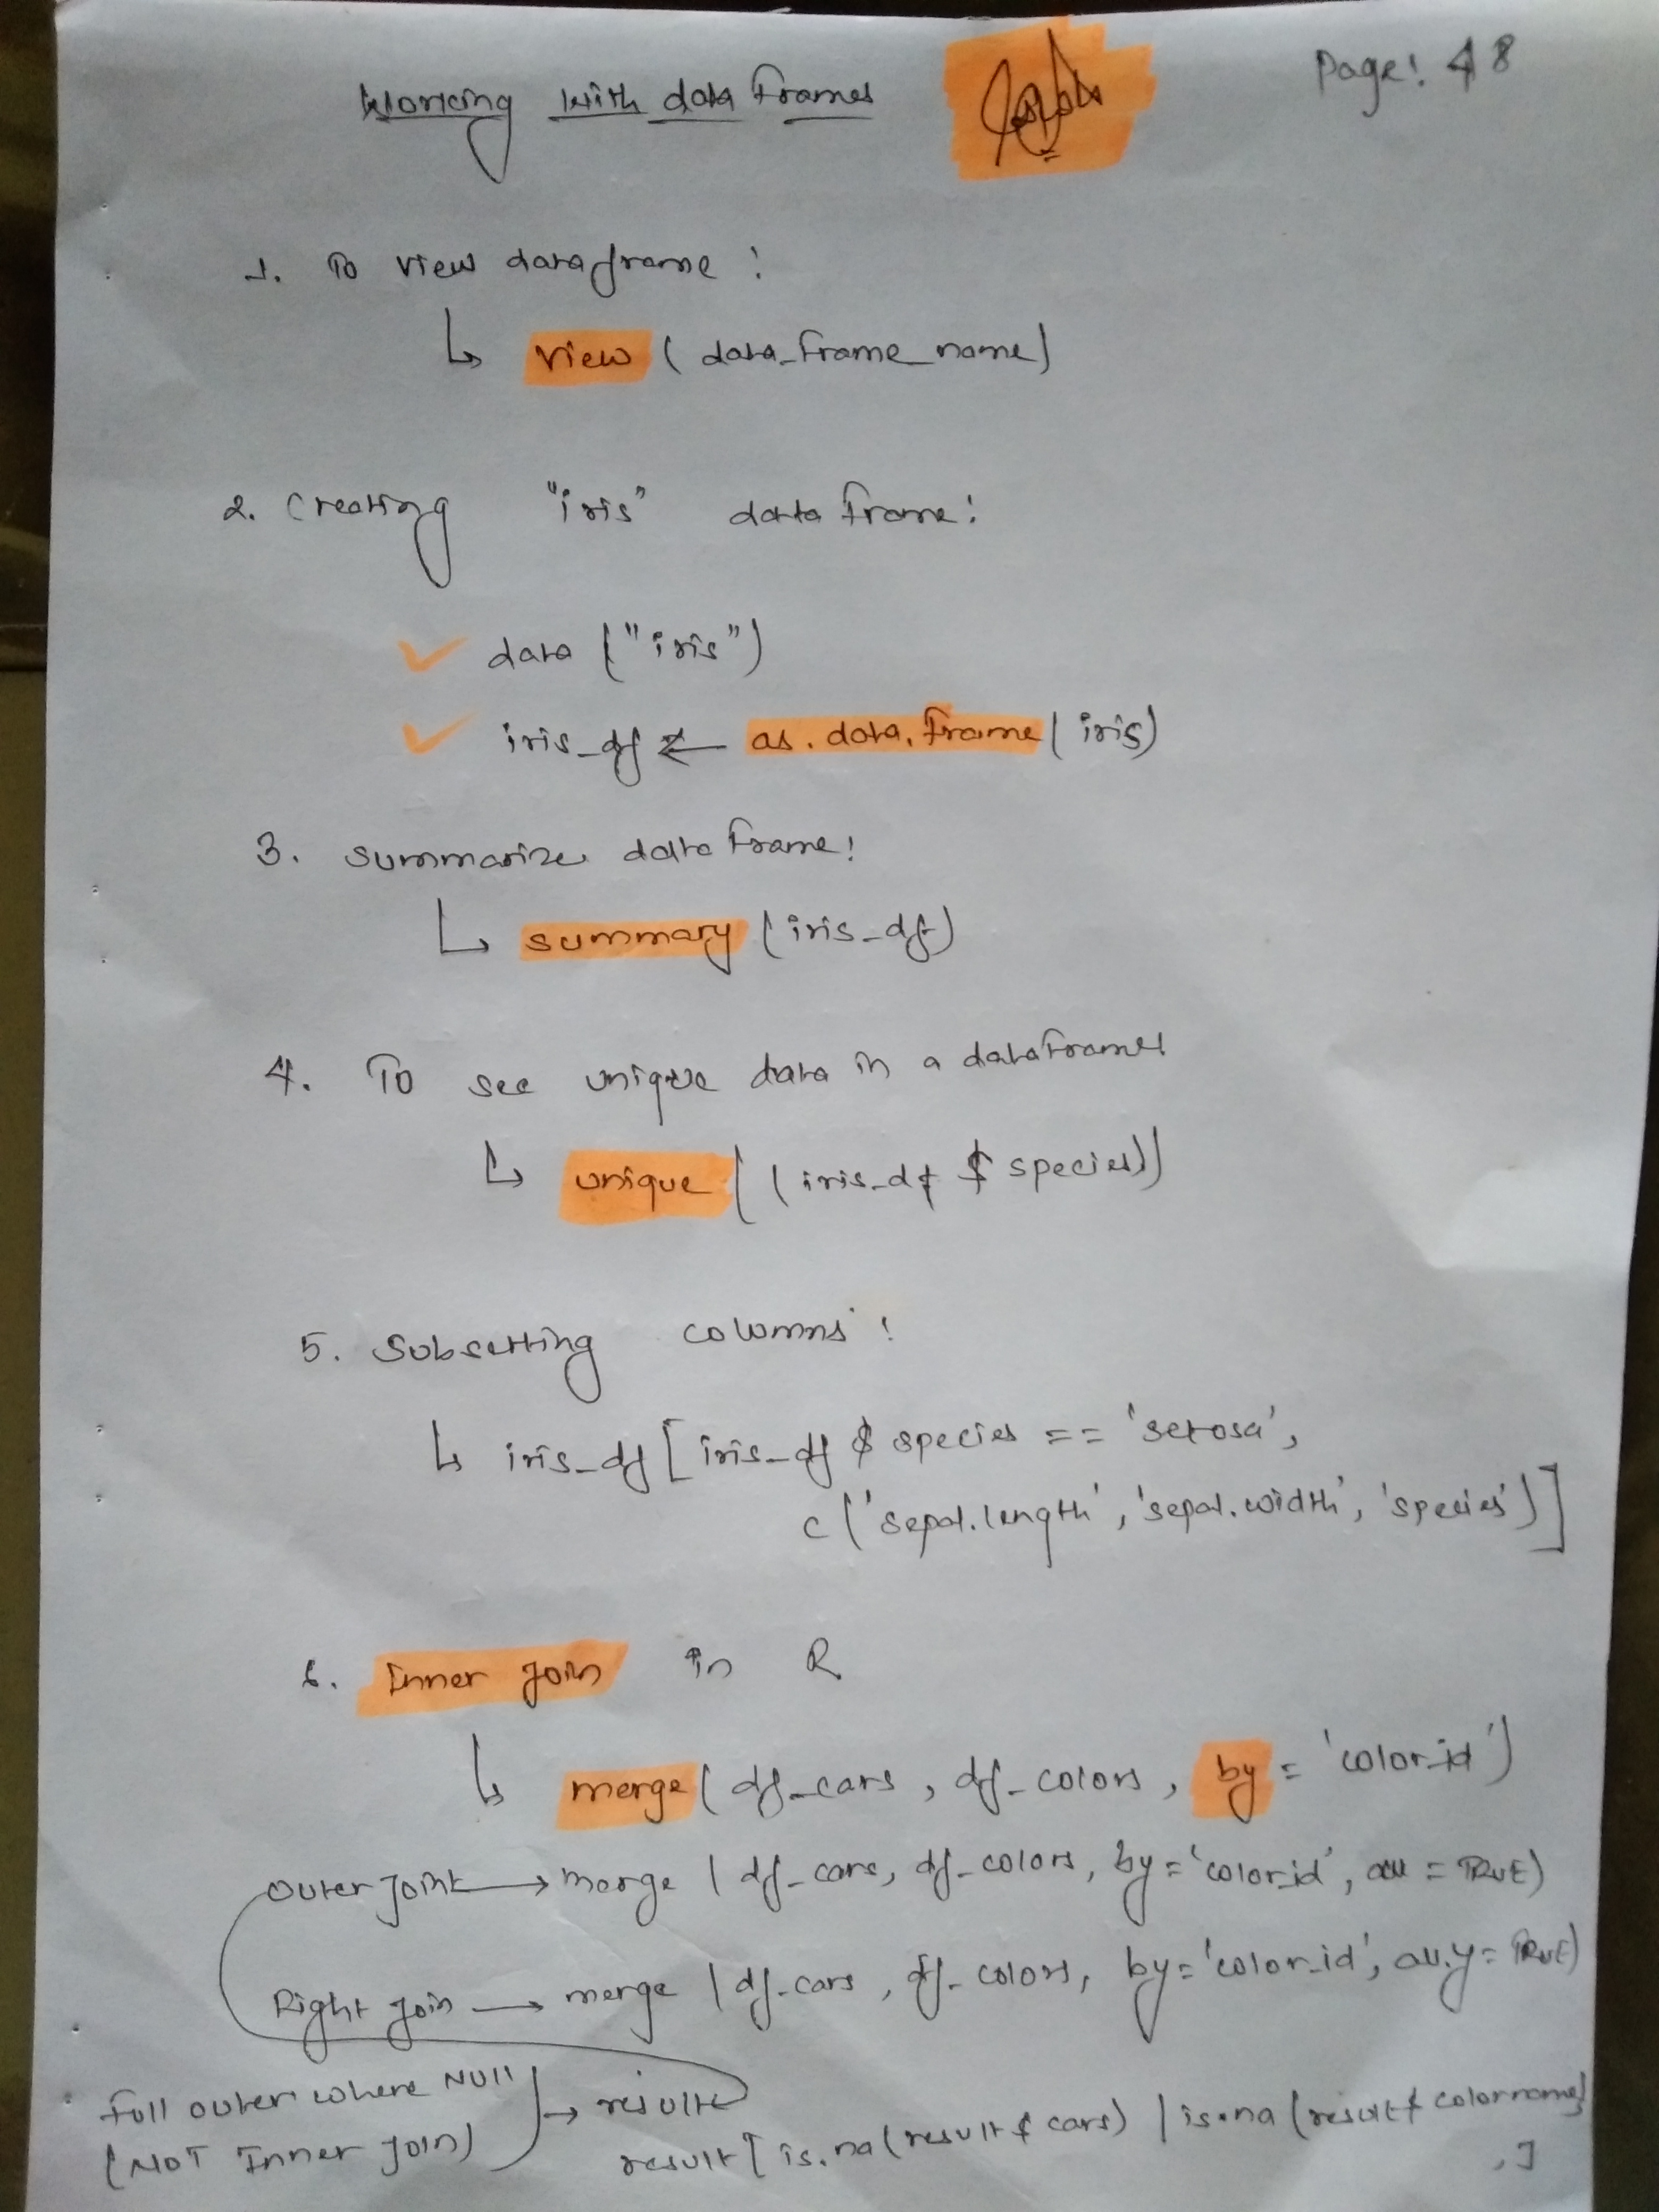 Working with data frames
Page: 48
1. To view dataframe :
↳ view ( data_frame_name)
2. Creating "iris" data frame :
✓ data ("iris")
✓ iris_df <- as.data.frame( iris)
3. Summarize data frame :
↳ summary (iris_df)
4. To see unique data in a dataframes
↳ unique ((iris_df $ species))
5. Subsetting columns :
↳ iris_df [ iris_df $ species == 'setosa',
c('sepal.length', 'sepal.width', 'species')]
6. Inner Join in R
↳ merge( df_cars , df_colors , by = 'color_id')
Outer Joint → merge ( df_cars, df_colors, by = 'color_id', all = TRUE)
Right Join → merge ( df_cars , df_colors, by = 'color_id', all.y = TRUE)
Full outer where NULL
→ result
(NOT Inner Join)
result [ is.na (result $ cars) | is.na (result $ colorname)
, ]